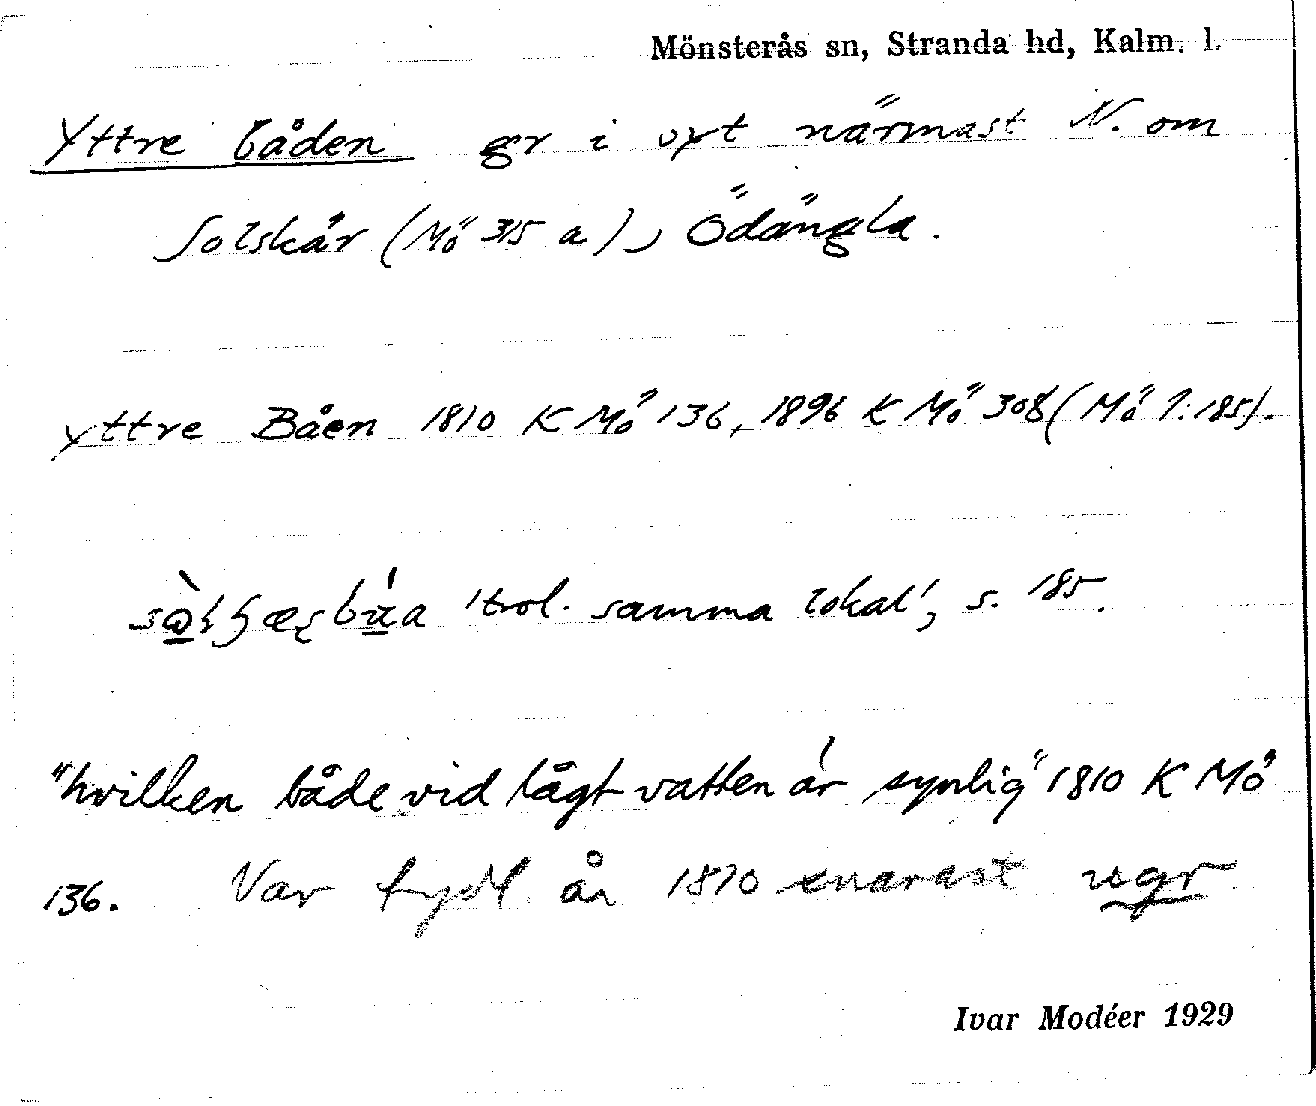 Mönsterås sn, Stranda hd, Kalm. l.
Yttre båden gr i vxt närmast N. om
Solskär (Mö 315 a), Ödängla.
Yttre Båen 1810 K Mö 136, 1896 K Mö 308 (Mö 1:185).
'trol. samma lokal', s. 185.
"hvilken både vid lågt vatten är synlig" 1810 K Mö
136. Var tydl år 1810 snarast ugr
Ivar Modéer 1929